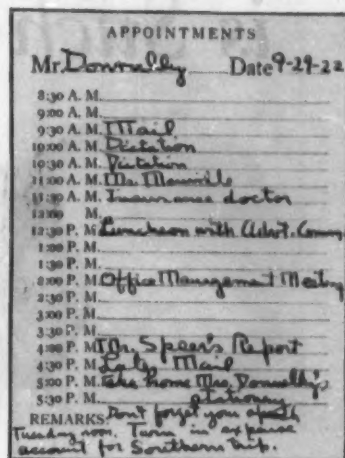 APPOINTMENTS
Mr. Donnelly Date 9-29-22
8:30 A. M.
9:00 A. M.
9:30 A. M. Mail
10:00 A. M. Dictation
10:30 A. M. Dictation
11:00 A. M. Mr. Manville
11:30 A. M. Insurance doctor
12:00 M.
12:30 P. M. Luncheon with Advt. Comm.
1:00 P. M.
1:30 P. M.
2:00 P. M. Office Management Meeting
2:30 P. M.
3:00 P. M.
3:30 P. M.
4:00 P. M. Mr. Speer's Report
4:30 P. M. Late Mail
5:00 P. M. take home Mrs. Donnelly's
5:30 P. M. stationary
REMARKS: Don't forget you speak
Tuesday noon. Turn in expense
account for Southern trip.